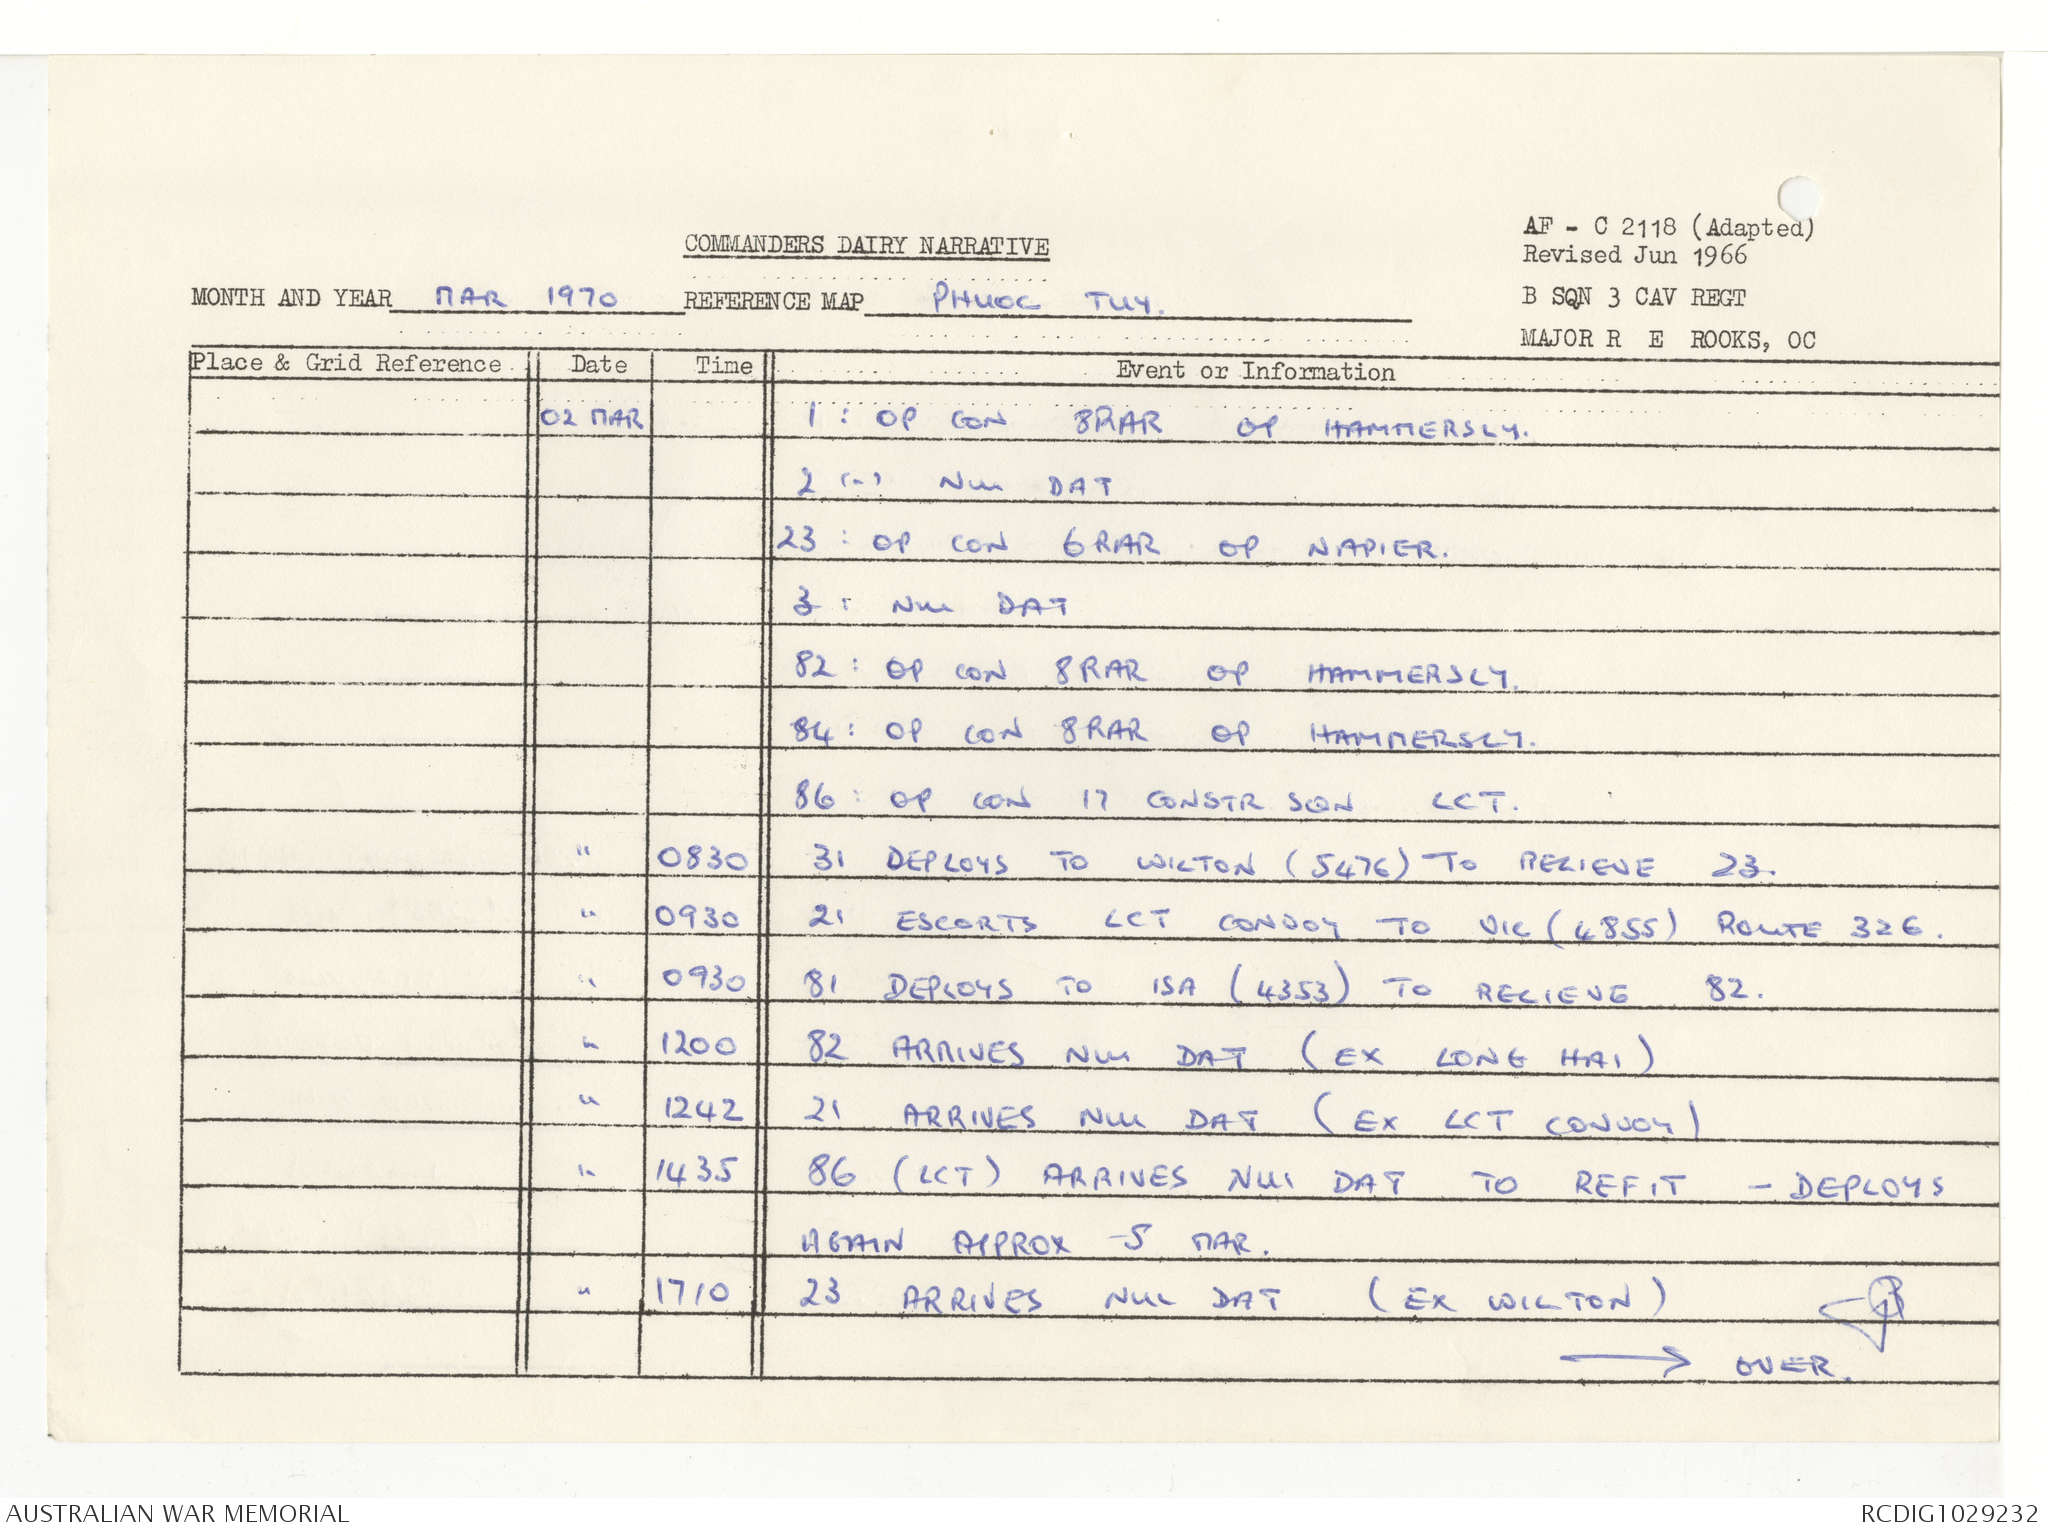 AF - C 2118 (Adapted)
Revised Jun 1966
COMMANDERS DAIRY NARRATIVE
MONTH AND YEAR MAR 1970 REFERENCE MAP PHUOC TUY.
B SQN 3 CAV REGT
MAJOR R E ROOKS, OC
Place & Grid Reference Date Time Event or Information
02 MAR 1 : OP CON 8RAR OP HAMMERSLY.
2 (-) NUI DAT
23 : OP CON 6RAR OP NAPIER.
3 : NUI DAT
82 : OP CON 8RAR OP HAMMERSLY.
84 : OP CON 8RAR OP HAMMERSLY.
86 : OP CON 17 CONSTR SQN LCT.
" 0830 31 DEPLOYS TO WILTON (5476) TO RELIEVE 23.
" 0930 21 ESCORTS LCT CONVOY TO VIC (4855) ROUTE 326.
" 0930 81 DEPLOYS TO ISA (4353) TO RELIEVE 82.
" 1200 82 ARRIVES NUI DAT (EX LONG HAI)
" 1242 21 ARRIVES NUI DAT (EX LCT CONVOY)
" 1435 86 (LCT) ARRIVES NUI DAT TO REFIT - DEPLOYS
AGAIN APPROX 5 MAR.
" 1710 23 ARRIVES NUI DAT (EX WILTON)
→ OVER.
AUSTRALIAN WAR MEMORIAL RCDIG1029232